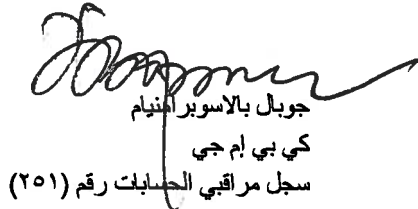 جوبال بالاسوبرامنيام
كي بي إم جي
سجل مراقبي الحسابات رقم (٢٥١)